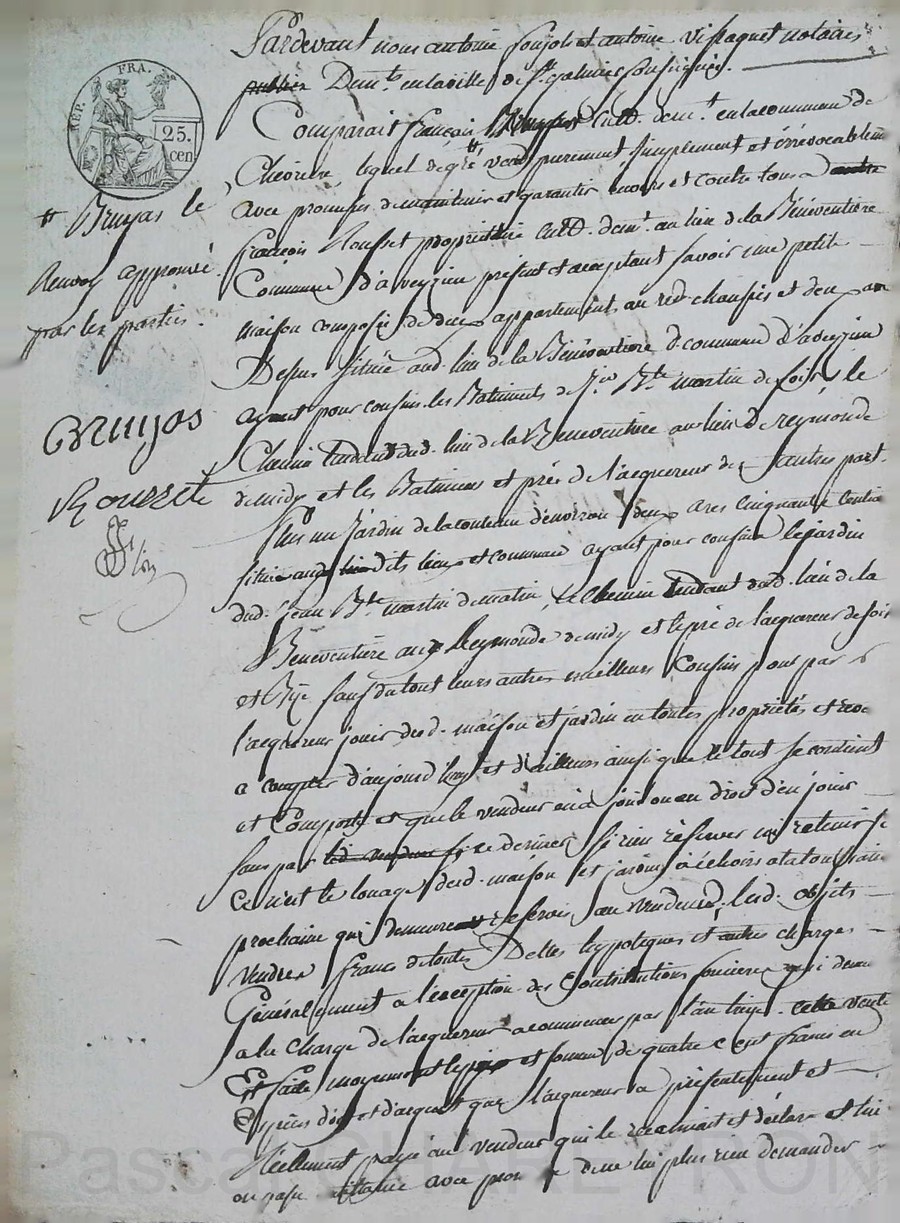 REP. FRA.
25. cen
Pardevant nous antoine soujols et antoine vissaguet notaires
publics Demts. en la ville de St. galmier soussignés.
Comparait françois Bruyas cultr. demt. en la commune de
Chevrieres lequel de gré vend purement, simplement et irrévocablement
avec promesses de maintenir et garantir envers et contre tous a
françois Rousset propriétaire cultr. demt. au lieu de la Bénéventiere
Commune d'aveyzieu présent et acceptant savoir une petite
maison composée de deux appartements au red chaussés et deux au
Depus située aud. lieu de la Bénéventiere d. commune d'aveyzieu
ayant pour confins les Batiments de Jn. Bte. martin de soir, le
Chemin tendant dud. lieu de la Beneventiere au lieu de reymonde
de midy et les Batiments et prés de l'acquereur des autres part.
Plus un Jardin de la contenue d'environ deux ares cinquante centia
située aux dits lieux et commune ayant pour confins le jardin
dud. Jean Bte. martin de matin, le Chemin tendant dud. lieu de la
Beneventiere aux Reymonde de midy et le pré de l'acquereur de soir
et Bize sauf du tout leurs autres meilleurs Confins pour par
l'acquereur jouir desd. maison et jardin en toutes propriétés et
a compter d'aujourd'huy et d'ailleurs ainsi que le tout se contient
et Comporte et que le vendeur en a joui ou eu droit d'en jouir
sans par led. vendeur ce dernier si rien réserver ni retenir si
Ce n'est le louage desd. maison et jardin à échoir a la toussaint
prochaine qui demeure réservé au vendeur, lesd. objets
vendus francs de toutes Dettes hypoteques et autres charges
Généralement a l'exception des Contributions foncieres qui
a la charge de l'acquereur a commencer par l'an treize. cette vente
Est faite moyennant le prix et somme de quatre cent francs en
Espèces d'or et d'argent que l'acquereur a présentement et
Réelement payé au vendeur qui le reconnait et déclare et lui
en passe quittance avec promesse de ne lui plus rien demander
# Bruyas le
Renvoy approuvé
par les parties.
Bruyas
Roussete
Pascal CHARETRON